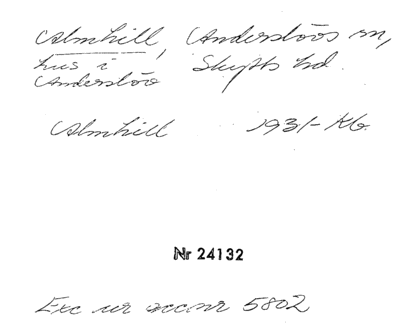 Almhill, Anderslövs sn,
hus i Skytts hd.
Anderslöv
Almhill 1931- Kb.
Nr 24132
Exc ur acc nr 5802